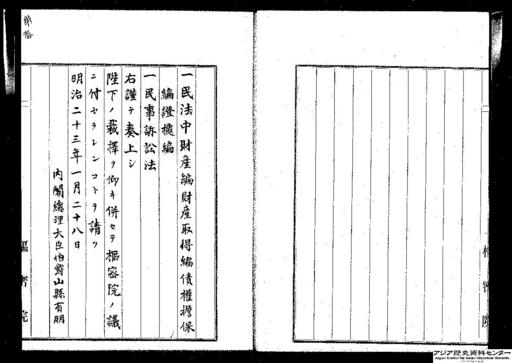 一民法中財産編財産取得編債權擔保
編證據編
一民事訴訟法
右謹テ奏上シ
陛下ノ裁擇ヲ仰キ併セテ樞密院ノ議
ニ付セラレンコトヲ請フ
明治二十三年一月二十八日
内閣總理大臣伯爵山縣有朋
樞密院
アジア歴史資料センター
Japan Center for Asian Historical Records